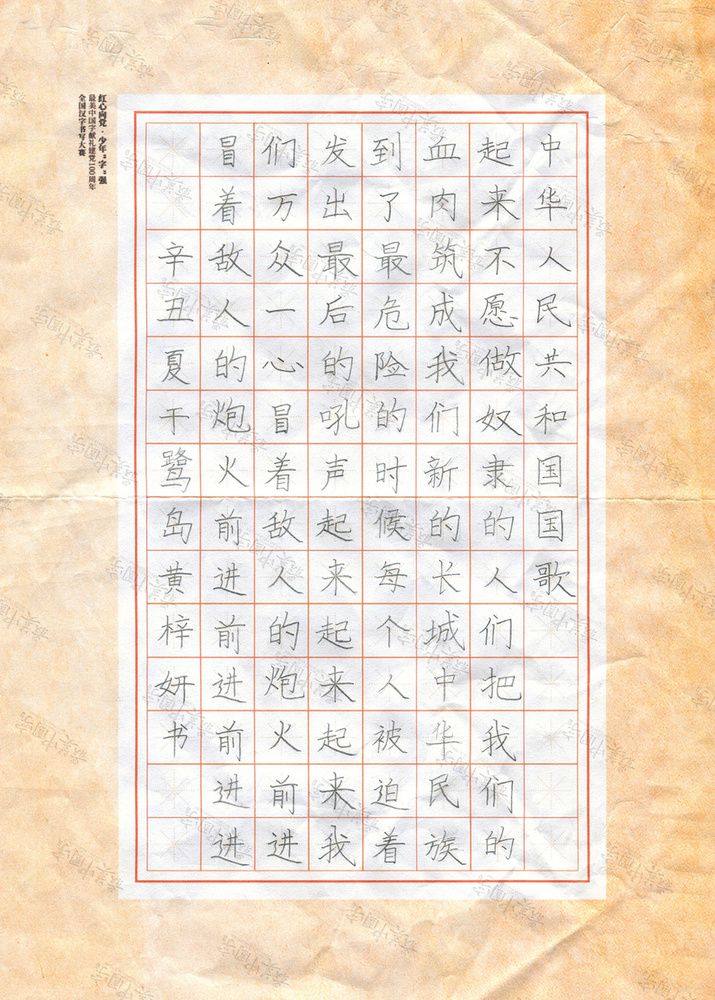 红心向党·少年“字”强
最美中国字献礼建党100周年
全国汉字书写大赛
中华人民共和国国歌
起来不愿做奴隶的人们把我们的
血肉筑成我们新的长城中华民族
到了最危险的时候每个人被迫着
发出最后的吼声起来起来起来我
们万众一心冒着敌人的炮火前进
冒着敌人的炮火前进前进前进进
辛丑夏于鹭岛黄梓妍书